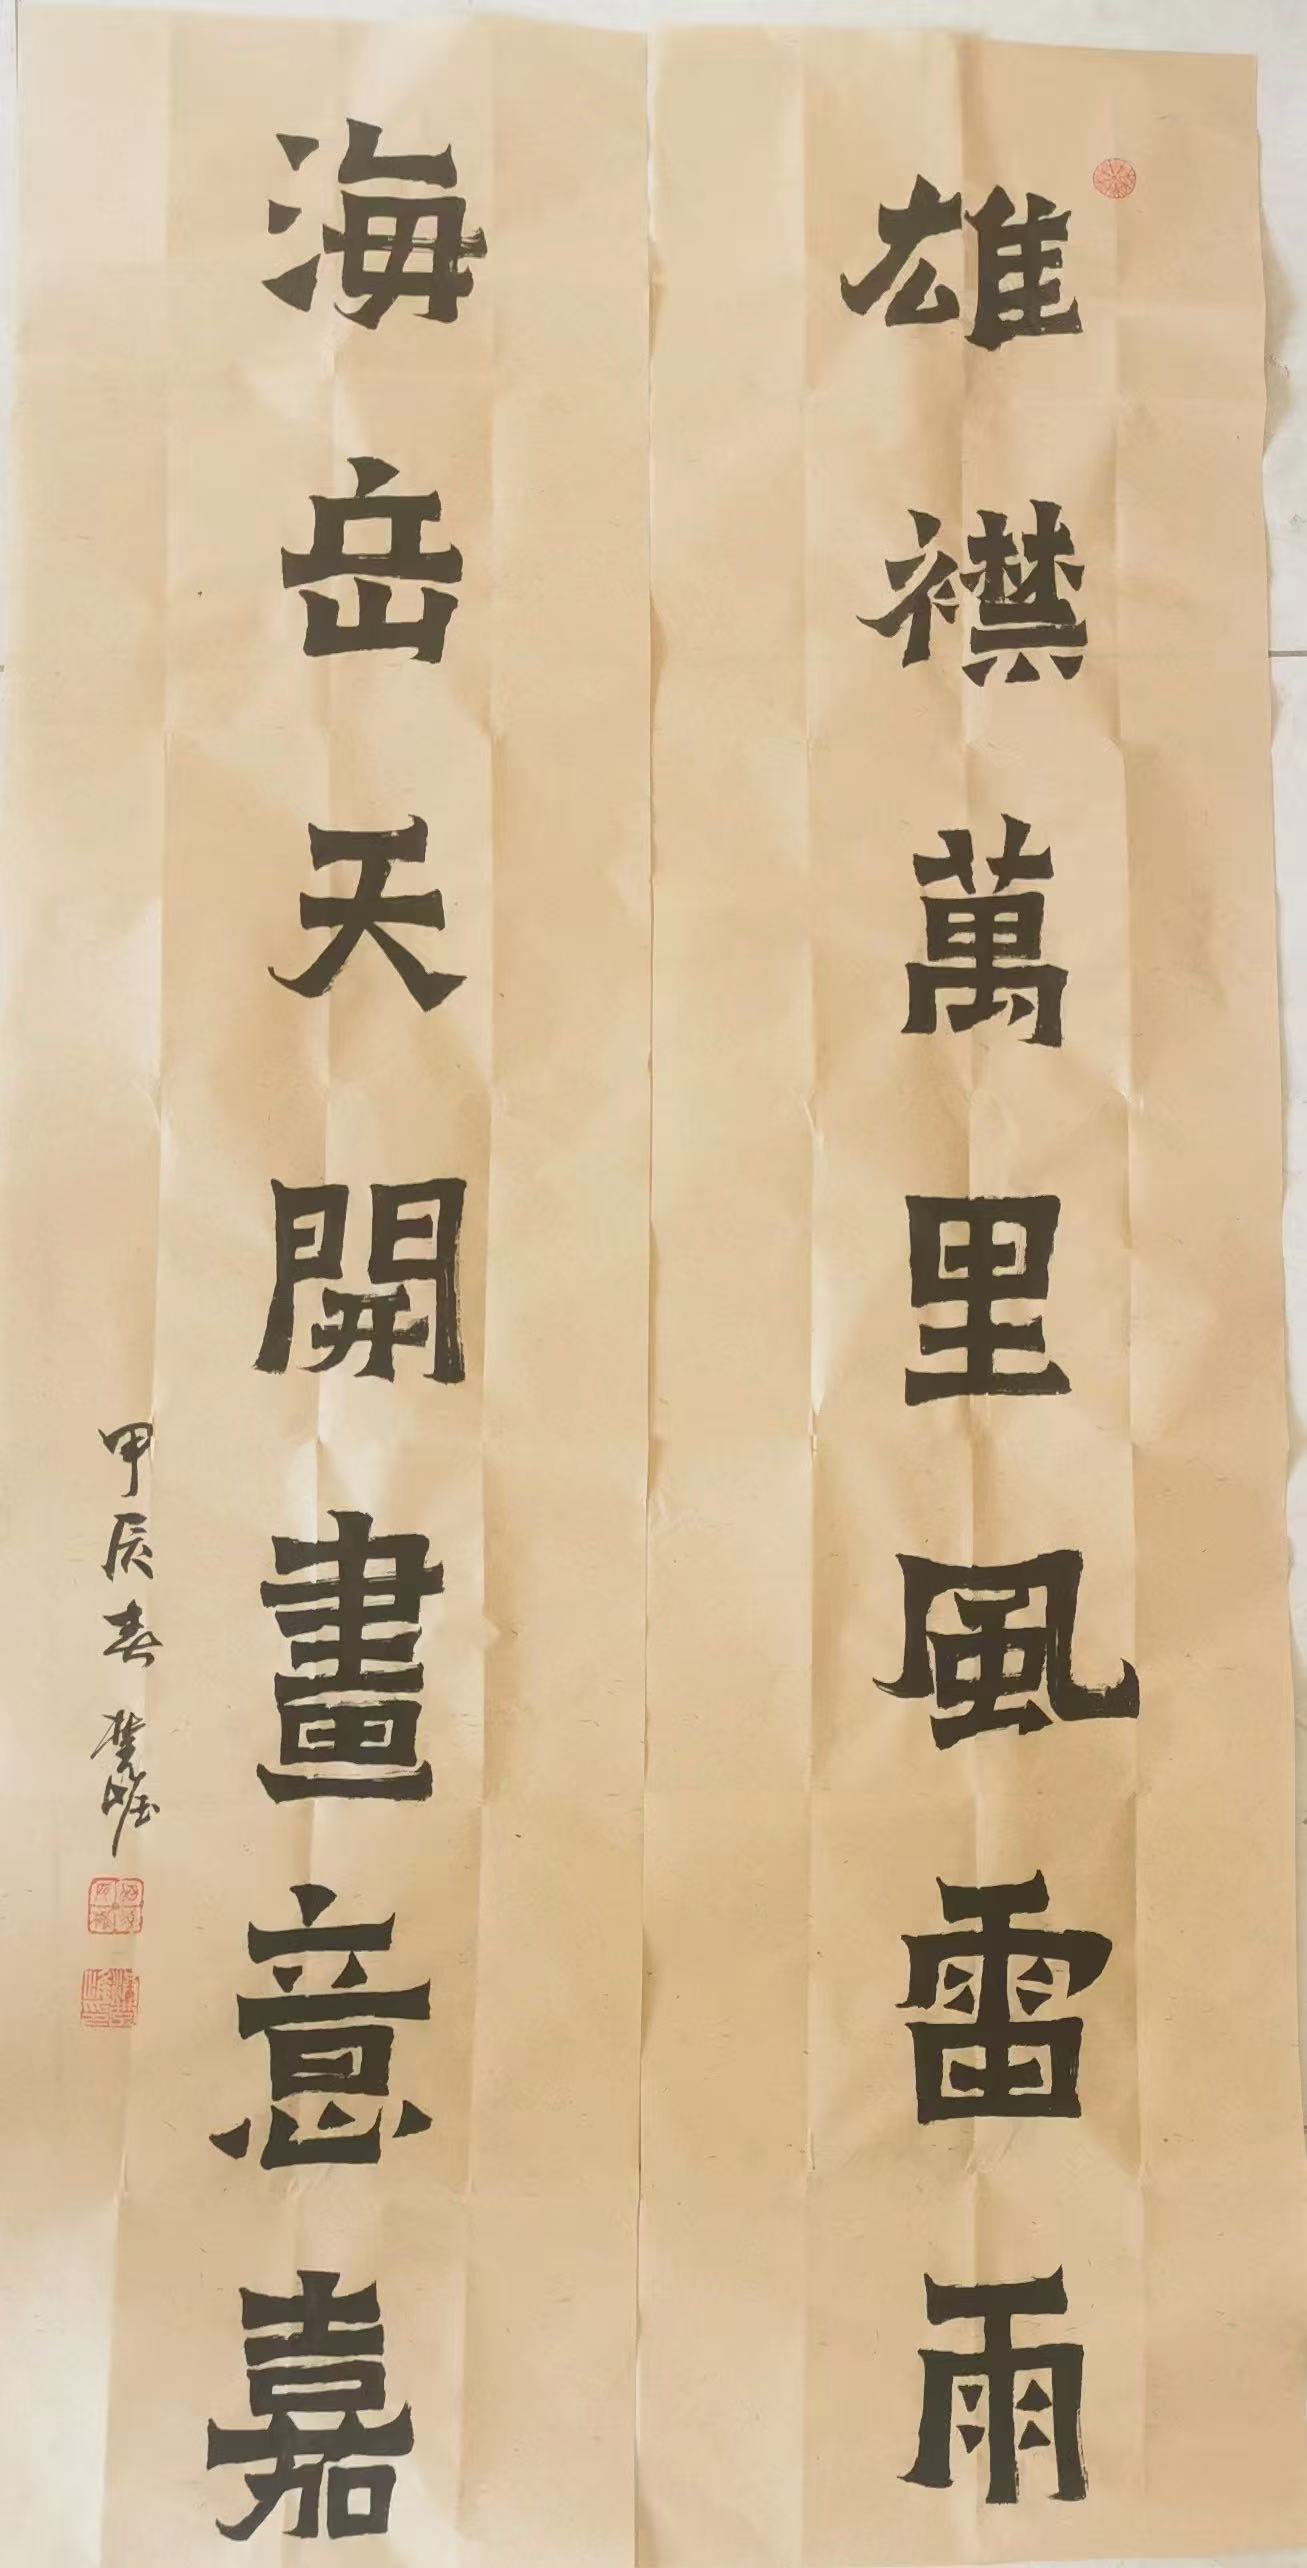 雄襟萬里風雷雨
海岳天開畫意嘉
甲辰春